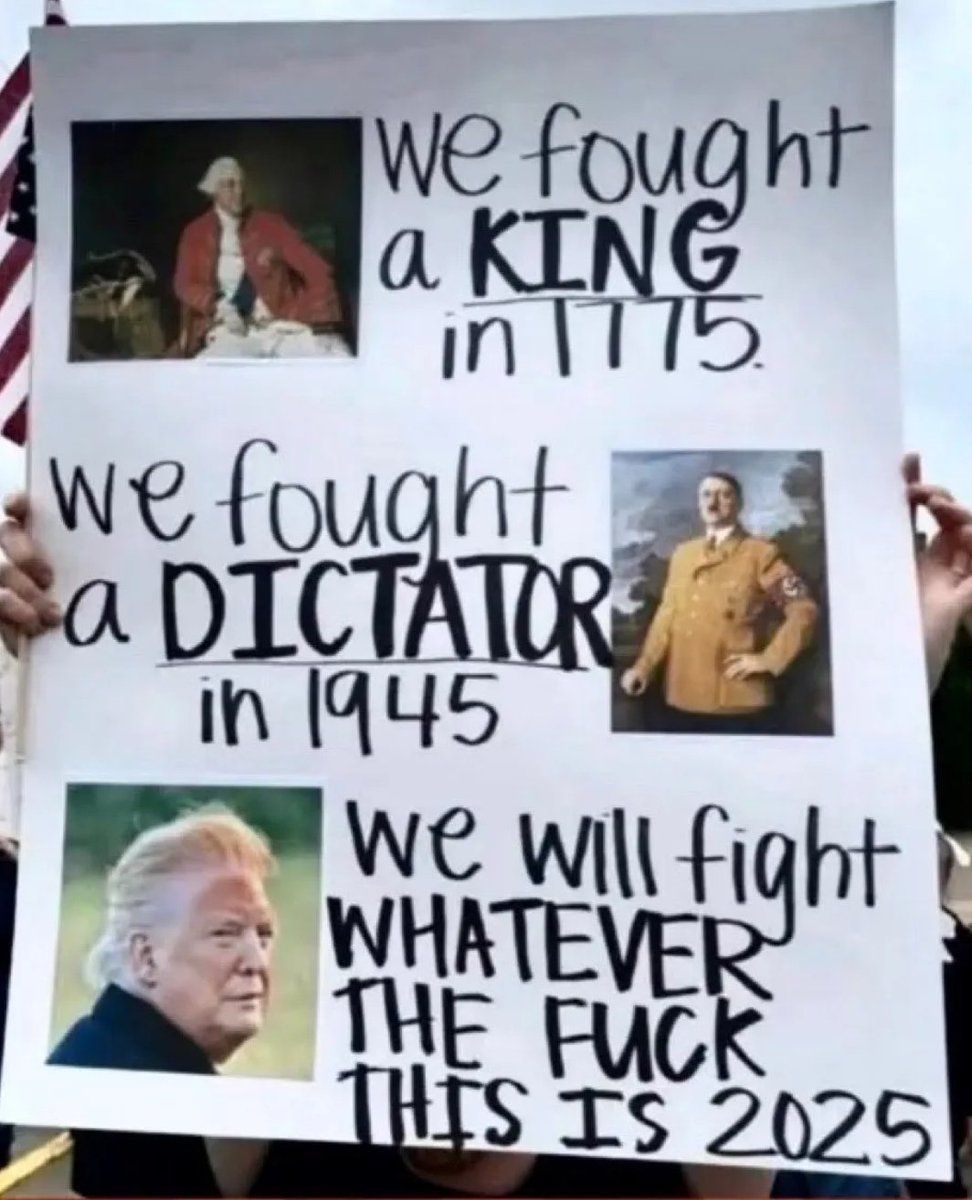 We fought
a KING
in 1775.
We fought
a DICTATOR
in 1945
We will fight
WHATEVER
THE FUCK
THIS IS 2025